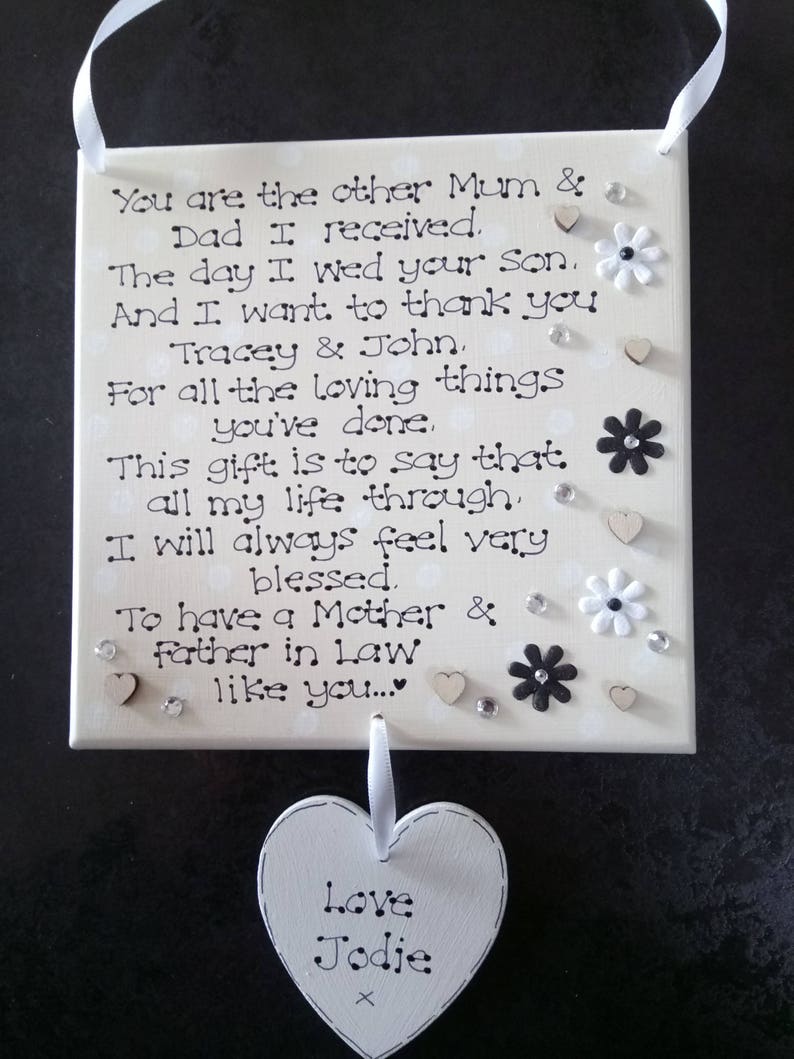 You are the other Mum &
Dad I received.
The day I wed your son.
And I want to thank you
Tracey & John.
For all the loving things
you've done.
This gift is to say that
all my life through.
I will always feel very
blessed.
To have a Mother &
Father in Law
like you...♥
Love
Jodie
x